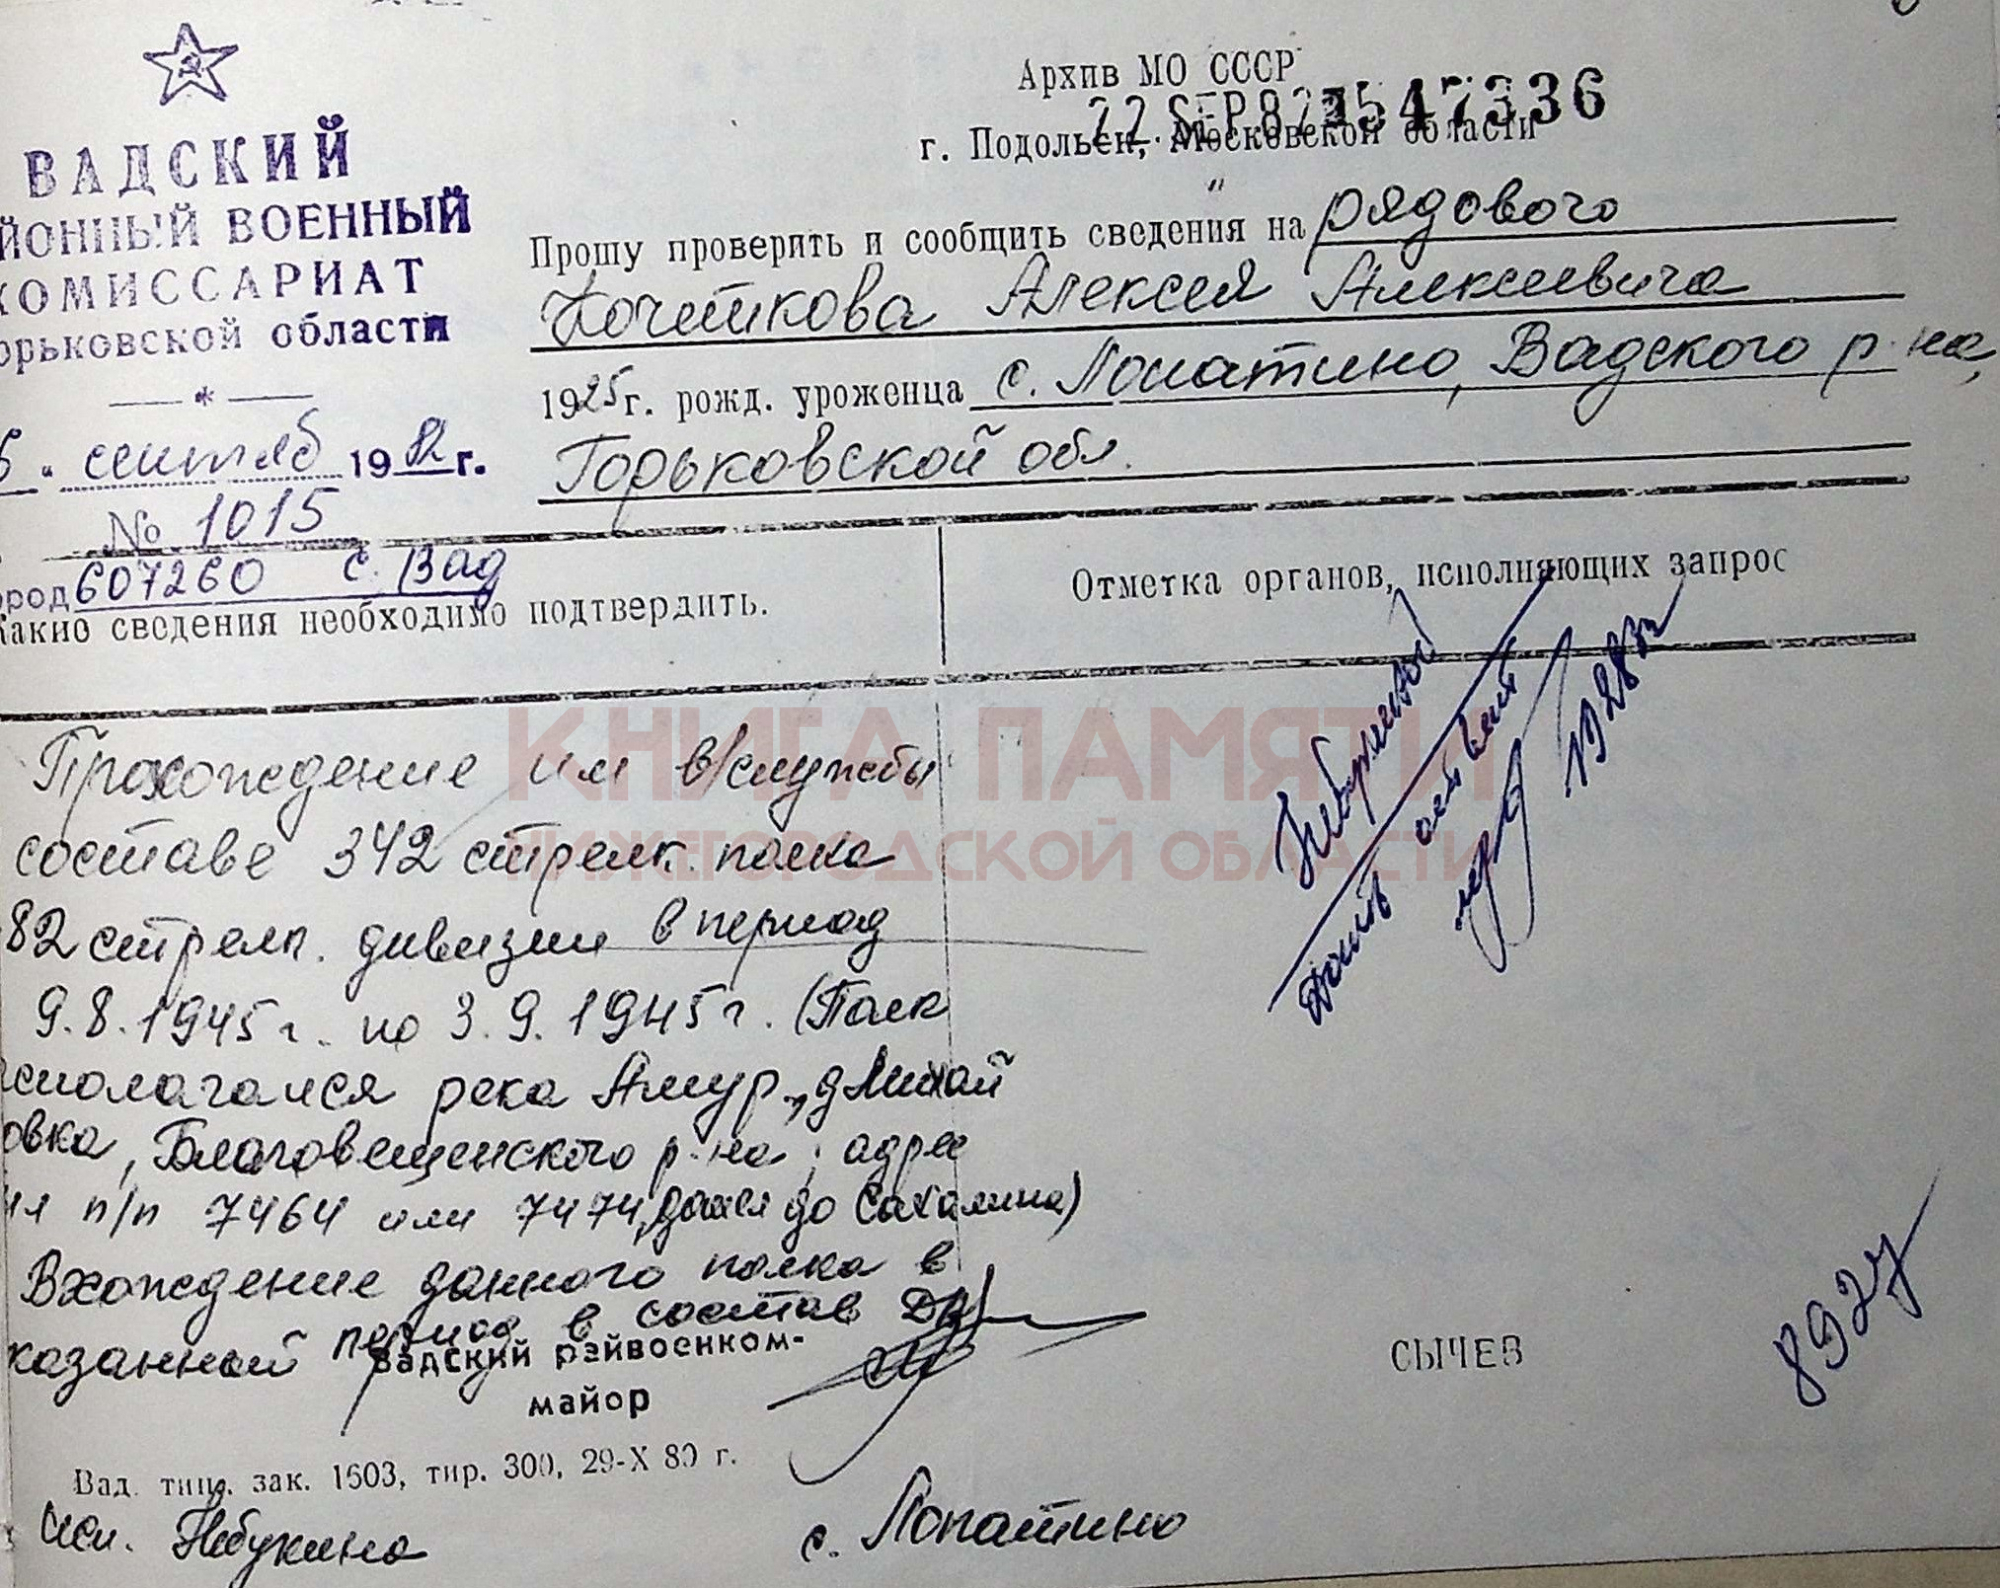 ВАДСКИЙ
ЙОННЫЙ ВОЕННЫЙ
КОМИССАРИАТ
орьковской области
*
сентяб 1982 г.
№ 1015
ород 607260 с. Вад
Архив МО СССР
22 SEP 82 547336
г. Подольск, Московской области
Прошу проверить и сообщить сведения на рядового
Кочеткова Алексея Алексеевича
1925 г. рожд. уроженца с. Лопатино, Вадского р-на,
Горьковской обл.
Какие сведения необходимо подтвердить.
Отметка органов, исполняющих запрос
Прохождение им в/службы
составе 342 стрелк. полка
82 стрелк. дивизии в период
9.8.1945 г. по 3.9.1945 г. (Полк
сполагался река Амур, д Михай
овка, Благовещенского р-на, адрес
п/п 7464 или 7474, дошел до Сахалина)
Вхождение данного полка в
казанный период в состав ДА
КНИГА ПАМЯТИ
НИЖЕГОРОДСКОЙ ОБЛАСТИ
Вадский райвоенком-
майор
СЫЧЕВ
8927
Вад. тип. зак. 1603, тир. 300, 29-X 80 г.
исп. Небукина
с. Лопатино